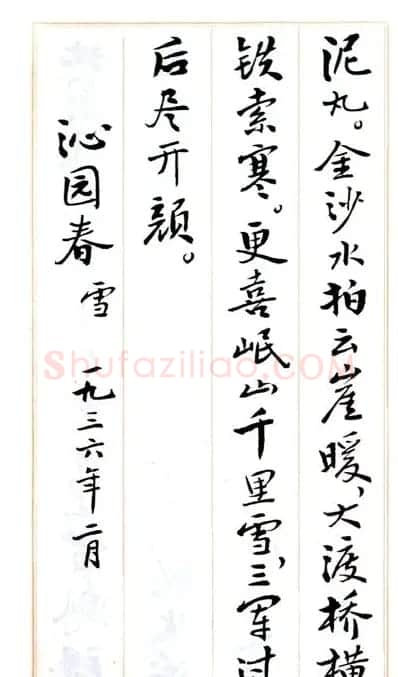 泥丸。金沙水拍云崖暖，大渡桥横
铁索寒。更喜岷山千里雪，三军过
后尽开颜。
沁园春 雪 一九三六年二月
Shufaziliao.COM